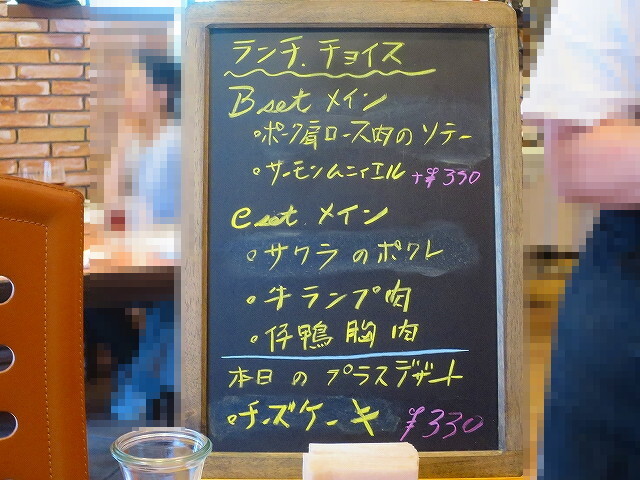 ランチ.チョイス
B set メイン
・ポーク肩ロース肉のソテー
・サーモンムニィエル +¥330
C set メイン
・サワラのポワレ
・牛ランプ肉
・仔鴨胸肉
本日のプラスデザート
・チーズケーキ ¥330